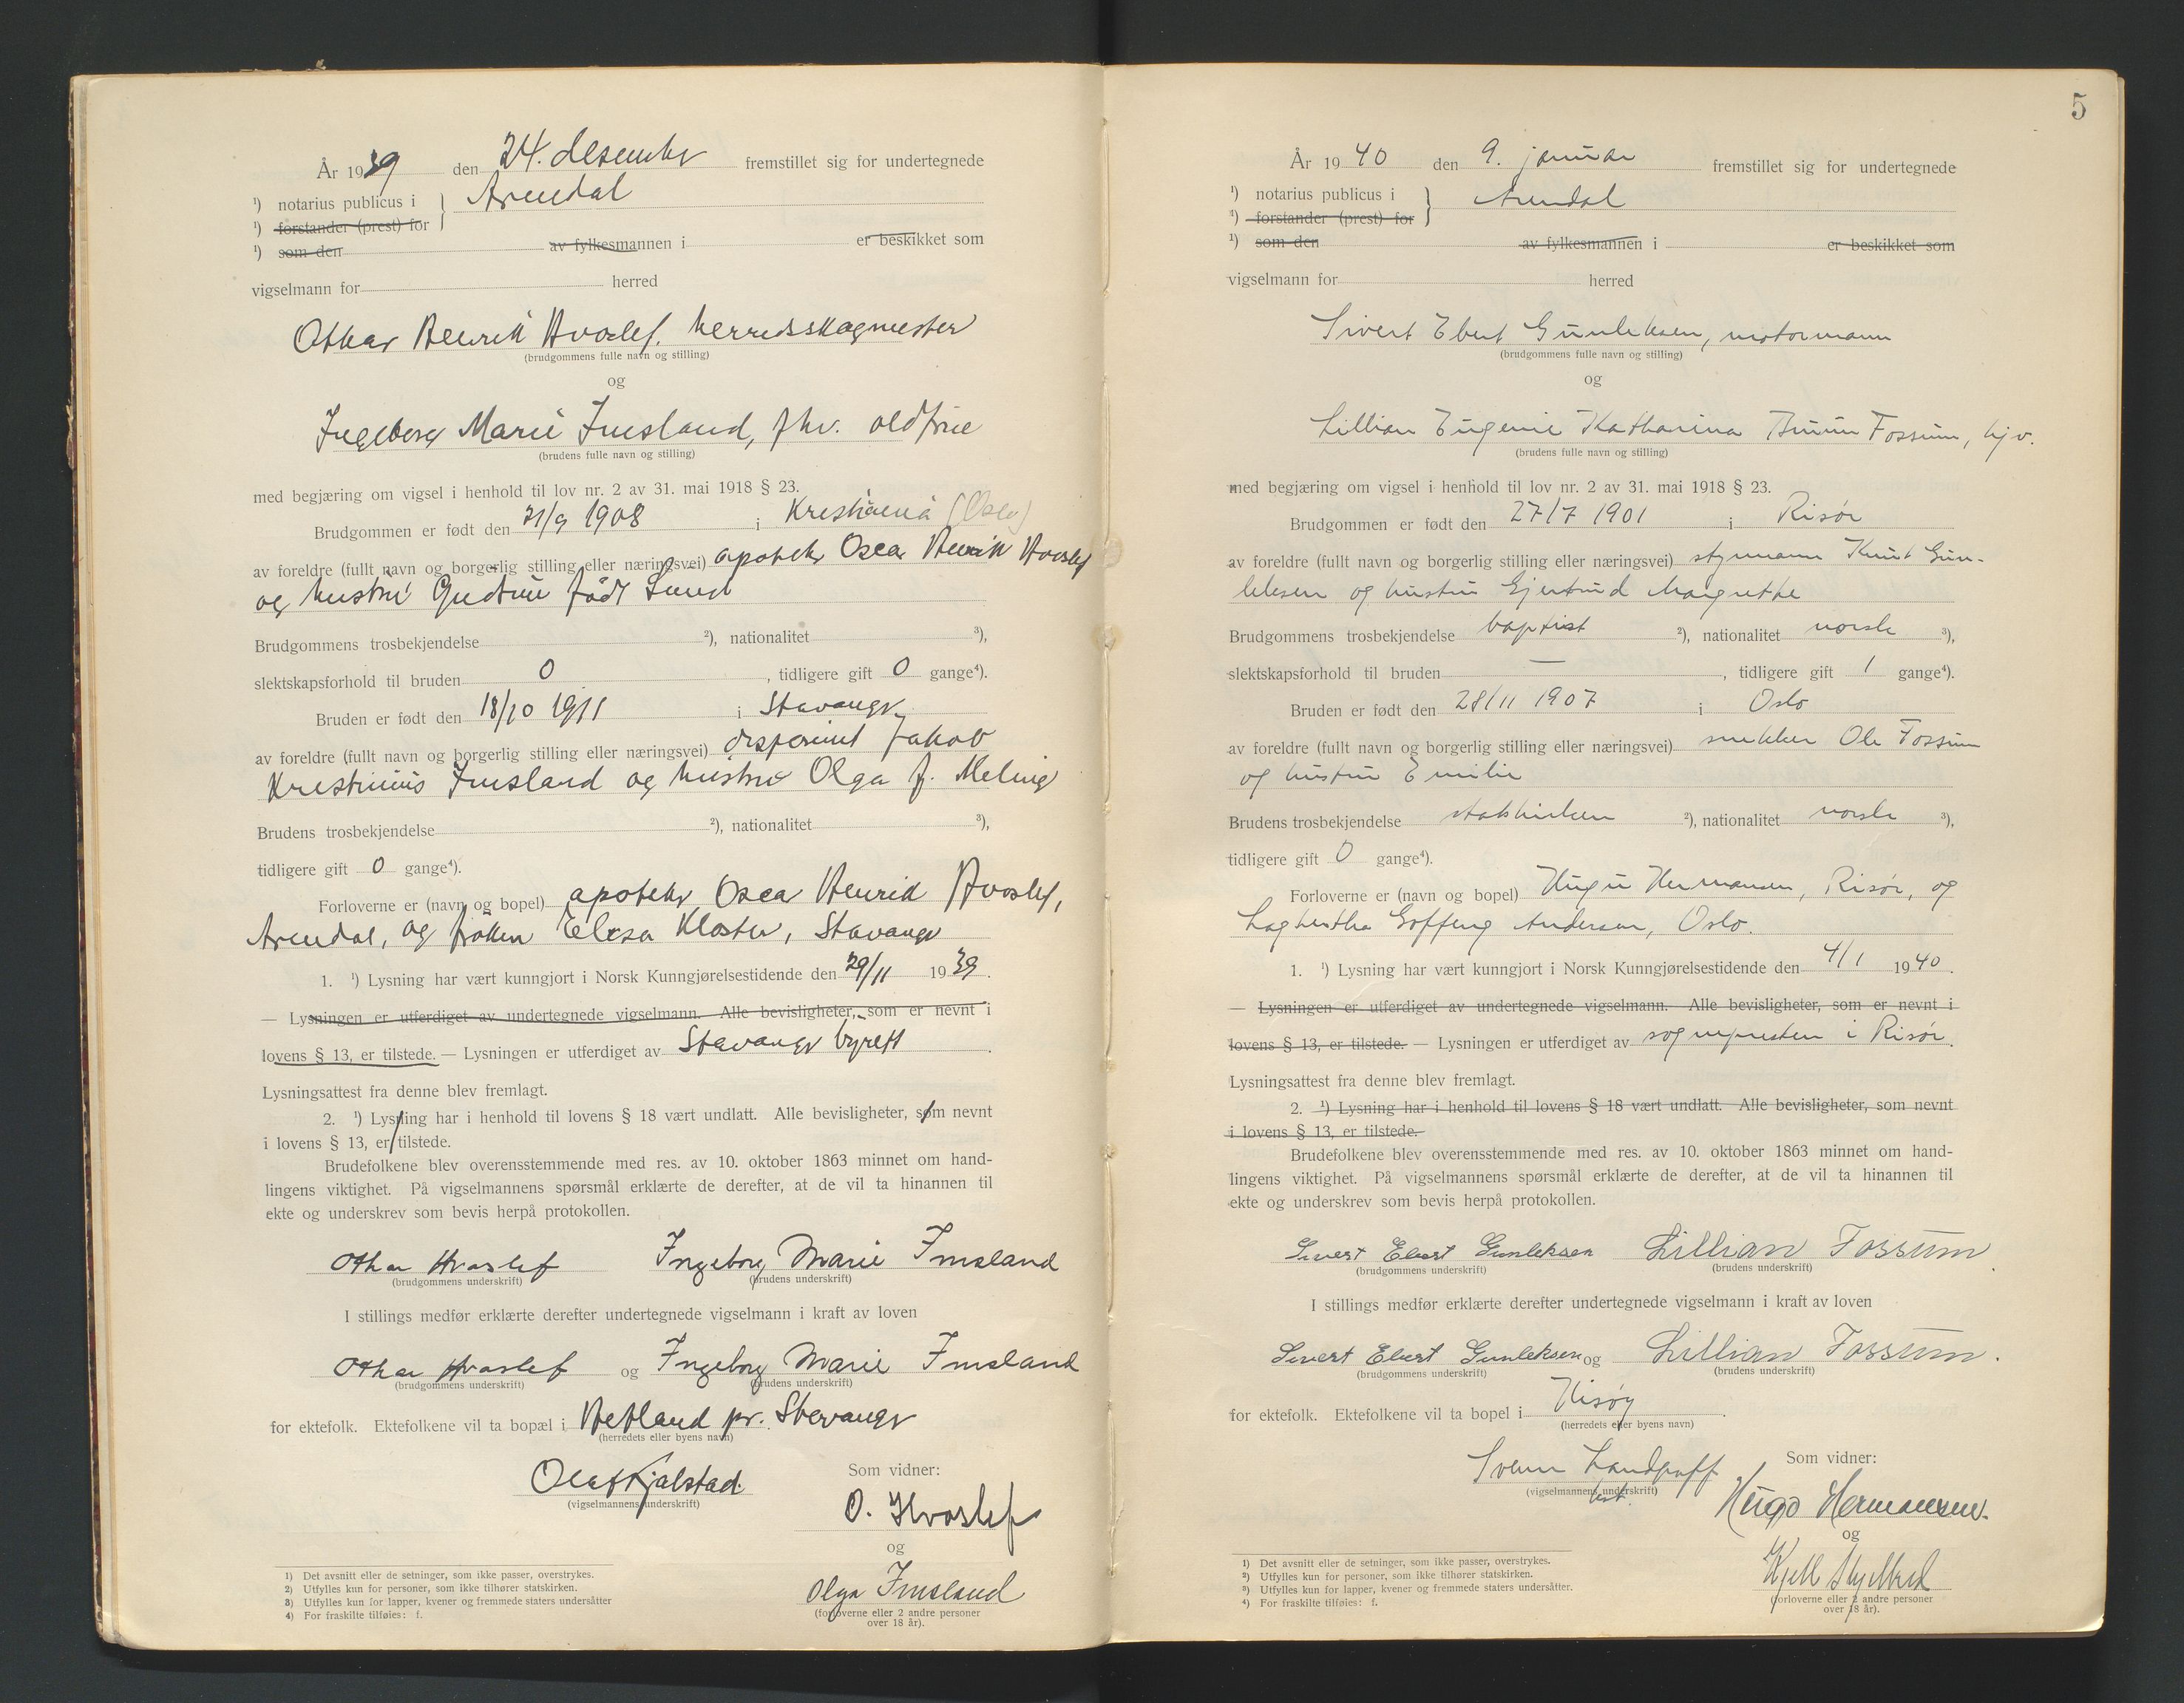 År 1939 den 24. desember fremstillet sig for undertegnede
¹) notarius publicus i Arendal
¹) forstander (prest) for
¹) som den av fylkesmannen i er beskikket som
vigselmann for herred
Othar Henrik Hvoslef. herredsskogmester
(brudgommens fulle navn og stilling)
og
Ingeborg Marie Imsland, fhv. oldfrue
(brudens fulle navn og stilling)
med begjæring om vigsel i henhold til lov nr. 2 av 31. mai 1918 § 23.
Brudgommen er født den 21/9 1908 i Kristiania (Oslo)
av foreldre (fullt navn og borgerlig stilling eller næringsvei) apoteker Oscar Henrik Hvoslef
og hustru Gudrun født Lund
Brudgommens trosbekjendelse ²), nationalitet ³),
slektskapsforhold til bruden 0, tidligere gift 0 gange⁴).
Bruden er født den 18/10 1911 i Stavanger
av foreldre (fullt navn og borgerlig stilling eller næringsvei) disponent Jakob
Kristinius Imsland og hustru Olga f. Meling
Brudens trosbekjendelse ²), nationalitet ³),
tidligere gift 0 gange⁴).
Forloverne er (navn og bopel) apoteker Oscar Henrik Hvoslef,
Arendal, og frøken Elisa Kloster, Stavanger
1. ¹) Lysning har vært kunngjort i Norsk Kunngjørelsestidende den 29/11 1939.
— Lysningen er utferdiget av undertegnede vigselmann. Alle bevisligheter, som er nevnt i
lovens § 13, er tilstede. — Lysningen er utferdiget av Stavanger byrett.
Lysningsattest fra denne blev fremlagt.
2. ¹) Lysning har i henhold til lovens § 18 vært undlatt. Alle bevisligheter, som nevnt
i lovens § 13, er tilstede.
Brudefolkene blev overensstemmende med res. av 10. oktober 1863 minnet om hand-
lingens viktighet. På vigselmannens spørsmål erklærte de derefter, at de vil ta hinannen til
ekte og underskrev som bevis herpå protokollen.
Othar Hvoslef Ingeborg Marie Imsland
(brudgommens underskrift) (brudens underskrift)
I stillings medfør erklærte derefter undertegnede vigselmann i kraft av loven
Othar Hvoslef og Ingeborg Marie Imsland
(brudgommens underskrift) (brudens underskrift)
for ektefolk. Ektefolkene vil ta bopæl i Hetland pr. Stavanger
(herredets eller byens navn)
Olaf Kjalstad.
(vigselmannens underskrift)
Som vidner:
O. Hvoslef
og
Olga Imsland
(forloverne eller 2 andre personer
over 18 år).
1) Det avsnitt eller de setninger, som ikke passer, overstrykes.
2) Utfylles kun for personer, som ikke tilhører statskirken.
3) Utfylles kun for lapper, kvener og fremmede staters undersåtter
4) For fraskilte tilføies: f.
5
År 1940 den 9. januar fremstillet sig for undertegnede
¹) notarius publicus i Arendal
¹) forstander (prest) for
¹) som den av fylkesmannen i er beskikket som
vigselmann for herred
Sivert Ebert Gunleksen, motormann
(brudgommens fulle navn og stilling)
og
Lillian Eugenie Katharina Fossum, hjv.
(brudens fulle navn og stilling)
med begjæring om vigsel i henhold til lov nr. 2 av 31. mai 1918 § 23.
Brudgommen er født den 27/7 1901 i Risør
av foreldre (fullt navn og borgerlig stilling eller næringsvei) styrmann Knut Gun-
leksen og hustru Gjertrud Margrethe
Brudgommens trosbekjendelse baptist ²), nationalitet norsk ³),
slektskapsforhold til bruden —, tidligere gift 1 gange⁴).
Bruden er født den 28/11 1907 i Oslo
av foreldre (fullt navn og borgerlig stilling eller næringsvei) snekker Ole Fossum
og hustru Emilie
Brudens trosbekjendelse statskirken ²), nationalitet norsk ³),
tidligere gift 0 gange⁴).
Forloverne er (navn og bopel) Hugo Hermansen, Risør, og
Laghertha Goffeng Andersen, Oslo.
1. ¹) Lysning har vært kunngjort i Norsk Kunngjørelsestidende den 4/1 1940.
— Lysningen er utferdiget av undertegnede vigselmann. Alle bevisligheter, som er nevnt i
lovens § 13, er tilstede. — Lysningen er utferdiget av sognepresten i Risør.
Lysningsattest fra denne blev fremlagt.
2. ¹) Lysning har i henhold til lovens § 18 vært undlatt. Alle bevisligheter, som nevnt
i lovens § 13, er tilstede.
Brudefolkene blev overensstemmende med res. av 10. oktober 1863 minnet om hand-
lingens viktighet. På vigselmannens spørsmål erklærte de derefter, at de vil ta hinannen til
ekte og underskrev som bevis herpå protokollen.
Sivert Ebert Gunleksen Lillian Fossum
(brudgommens underskrift) (brudens underskrift)
I stillings medfør erklærte derefter undertegnede vigselmann i kraft av loven
Sivert Ebert Gunleksen og Lillian Fossum.
(brudgommens underskrift) (brudens underskrift)
for ektefolk. Ektefolkene vil ta bopel i Hisøy.
(herredets eller byens navn)
Svenn
(vigselmannens underskrift)
Som vidner:
Hugo Hermansen.
og
Kjell
(forloverne eller 2 andre personer
over 18 år).
1) Det avsnitt eller de setninger, som ikke passer, overstrykes.
2) Utfylles kun for personer, som ikke tilhører statskirken.
3) Utfylles kun for lapper, kvener og fremmede staters undersåtter.
4) For fraskilte tilføies: f.